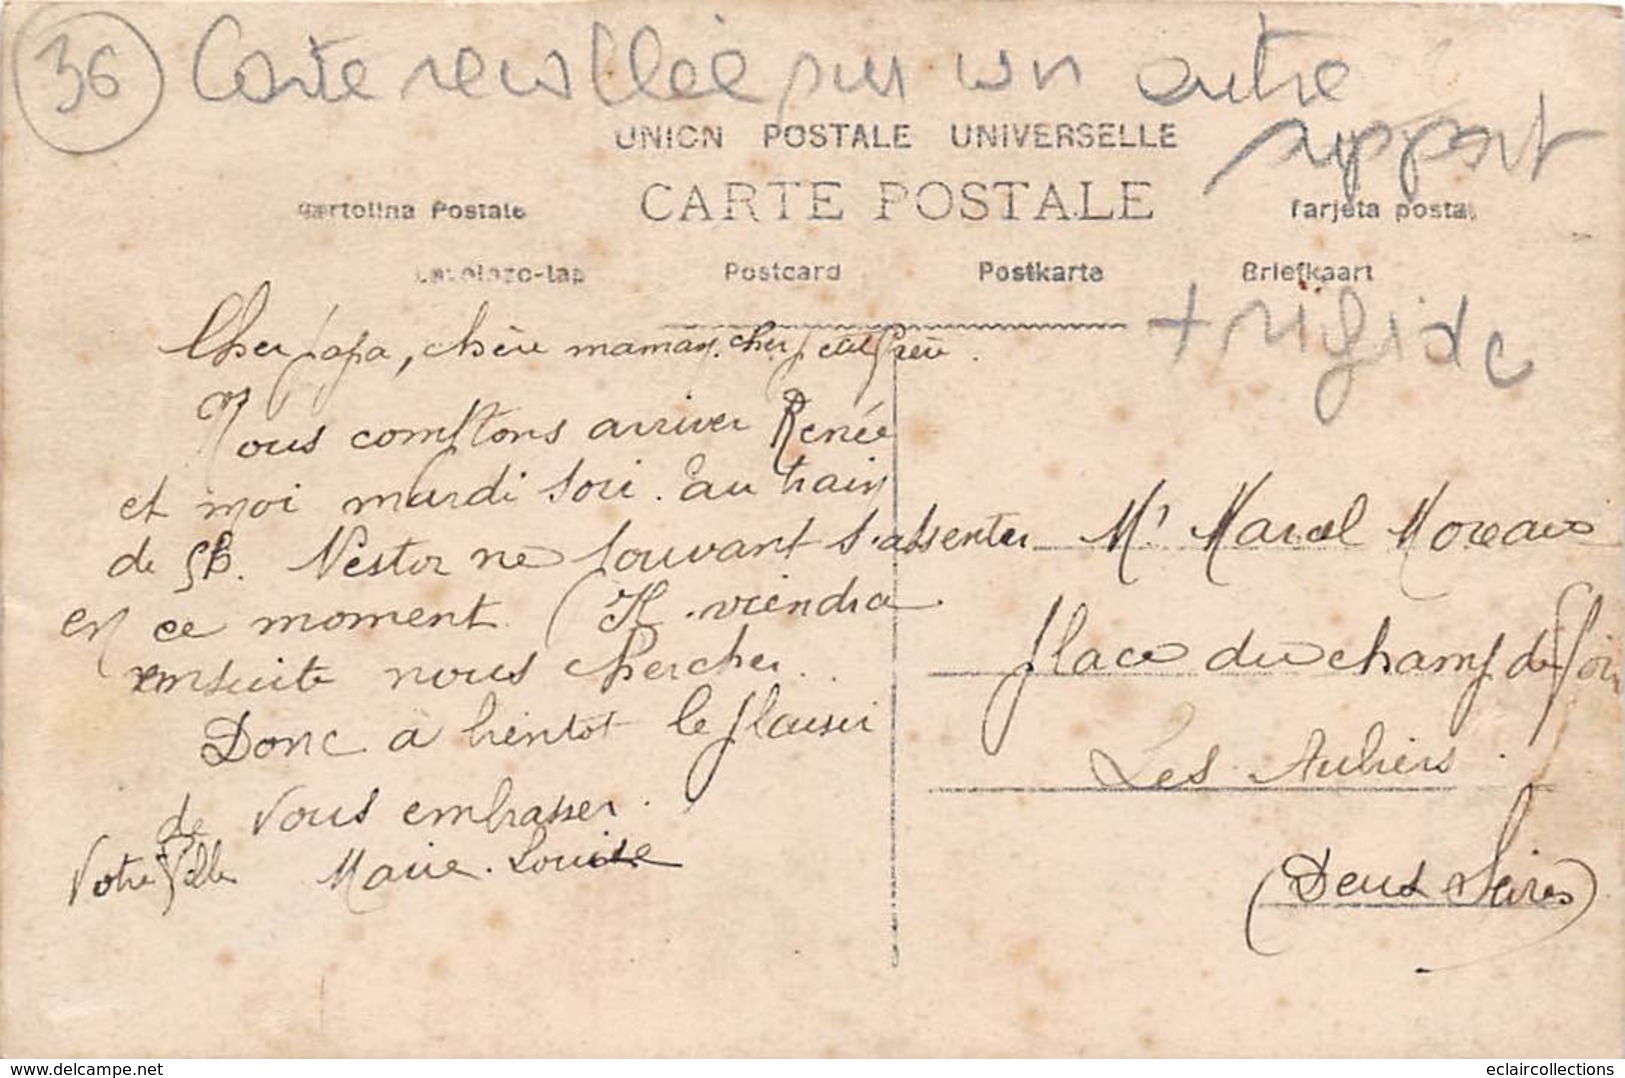 36 Carte recollée sur un autre
support
UNION POSTALE UNIVERSELLE
CARTE POSTALE
Cartolina Postale
Tarjeta postal
Levelezo-Lap Postcard Postkarte Briefkaart
+ rigide
Cher papa, chère maman, cher petit frère.
Nous comptons arriver Renée
et moi mardi soir. au train
de 5h. Nestor ne pouvant s'absenter
en ce moment. Il viendra
ensuite nous chercher.
Donc à bientôt le plaisir
de vous embrasser.
Votre fille Marie-Louise
Mr Marcel Moreau
place du champ de foire
Les Aubiers.
(Deux Sèvres)
www.delcampe.net
eclaircollections